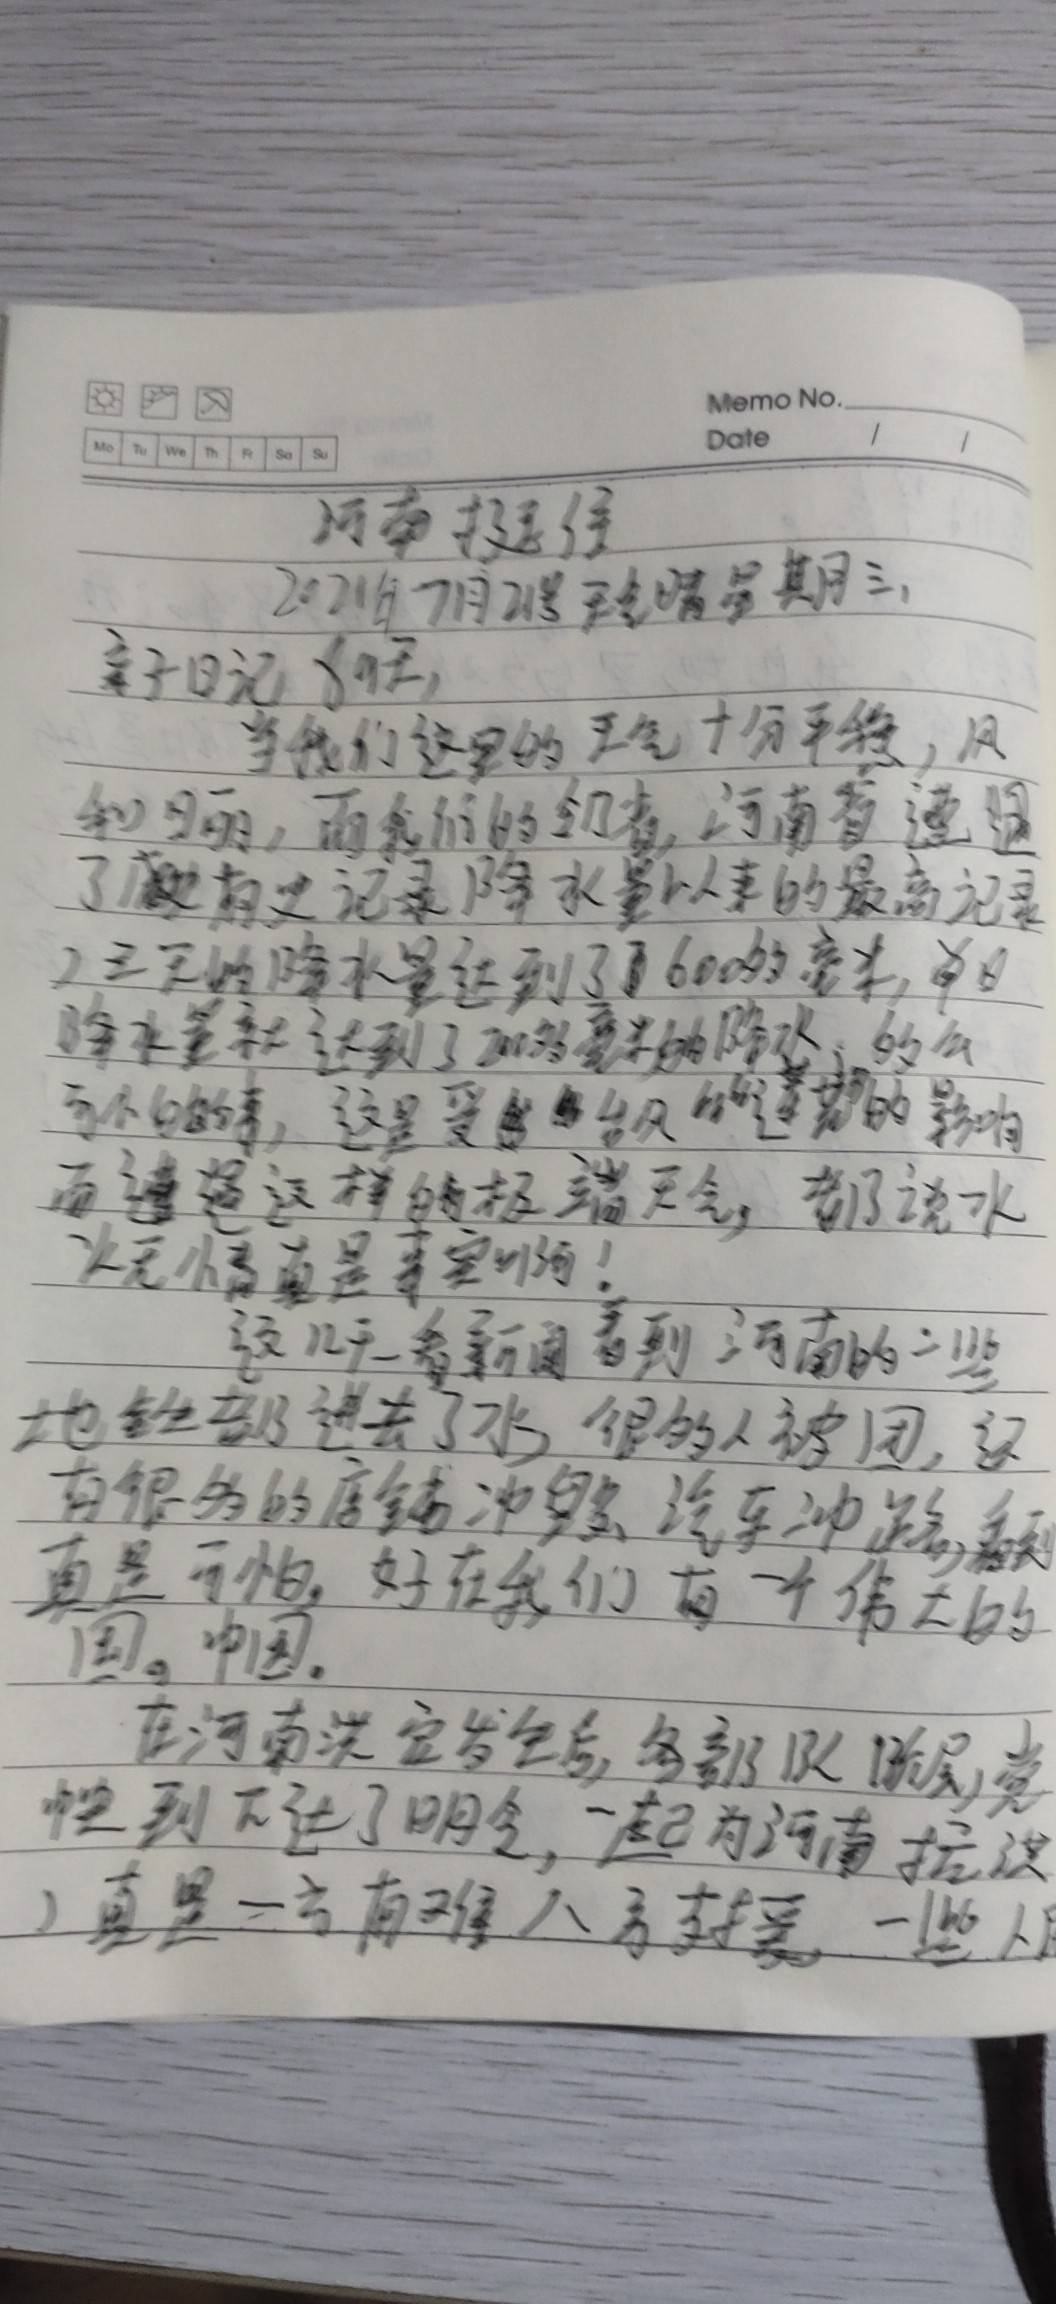 Memo No.
Mo Tu We Th Fr Sa Su
Date / /
河南挺住
2021年7月21号天气晴星期三,
亲子日记
当我们这里的天气十分平缓,风
和日丽,而我们的河南省遭遇
了有史记录降水量以来的最高记录
,三天的降水量达到了600多毫米,单日
降水量就达到了200多毫米的降水,
这是受台风的影响
而遭遇这样的极端天气,都说水
火无情真是事实啊!
这几天看新闻看到河南的一些
地铁都进去了水,很多人被困,还
有很多的店铺冲毁、汽车冲
真是可怕。好在我们有一个伟大的
国。中国。
在河南洪灾发生后,各部队
下达了明令,一起为河南抗洪
,真是一方有难八方支援,一些